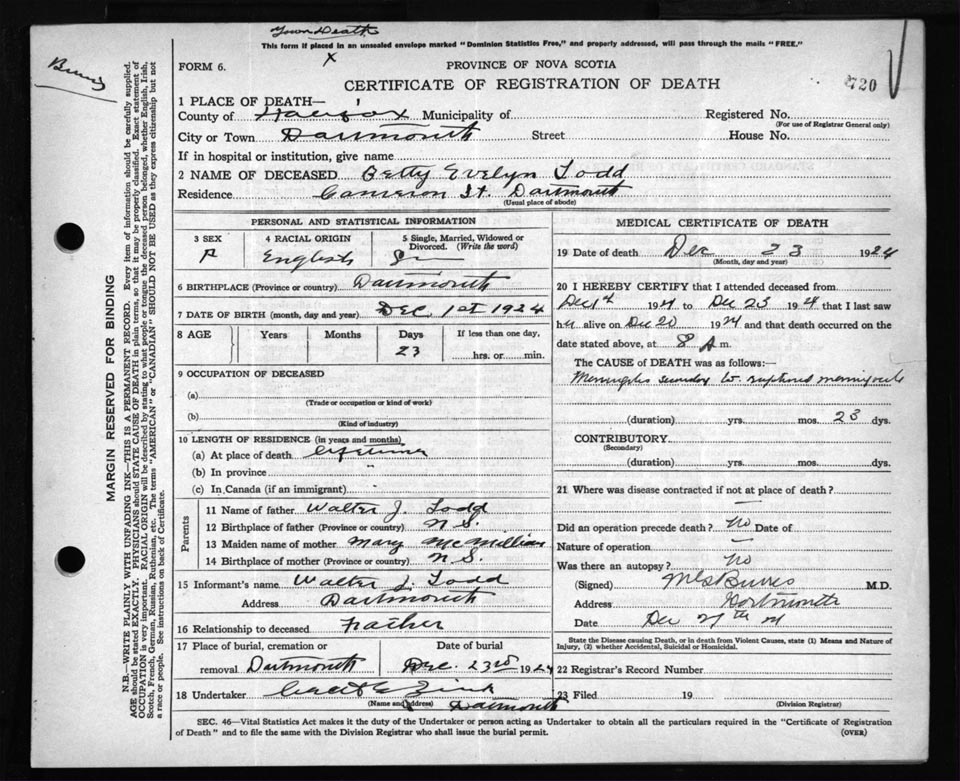 Town Death
This form if placed in an unsealed envelope marked "Dominion Statistics Free," and properly addressed, will pass through the mails "FREE."
X
FORM 6.
PROVINCE OF NOVA SCOTIA
CERTIFICATE OF REGISTRATION OF DEATH
720
1 PLACE OF DEATH—
County of Halifax Municipality of Registered No.
(For use of Registrar General only)
City or Town Dartmouth Street House No.
If in hospital or institution, give name
2 NAME OF DECEASED Betty Evelyn Todd
Residence Cameron St. Dartmouth
(Usual place of abode)
MARGIN RESERVED FOR BINDING
N.B.—WRITE PLAINLY WITH UNFADING INK—THIS IS A PERMANENT RECORD. Every item of information should be carefully supplied.
AGE should be stated EXACTLY. PHYSICIANS should STATE CAUSE OF DEATH in plain terms, so that it may be properly classified. Exact statement of
OCCUPATION is very important. RACIAL ORIGIN will be described by stating to what people or tongue the deceased person belonged, whether English, Irish,
Scotch, French, German, Russian, Ruthenian, etc. The terms "AMERICAN" or "CANADIAN" SHOULD NOT BE USED as they express citizenship but not
a race or people. See instructions on back of Certificate.
PERSONAL AND STATISTICAL INFORMATION
3 SEX
F
4 RACIAL ORIGIN
English
5 Single, Married, Widowed or
Divorced. (Write the word)
6 BIRTHPLACE (Province or country) Dartmouth
7 DATE OF BIRTH (month, day and year) Dec. 1st 1924
8 AGE Years Months Days If less than one day,
23 hrs. or min.
9 OCCUPATION OF DECEASED
(a)
(Trade or occupation or kind of work)
(b)
(Kind of industry)
10 LENGTH OF RESIDENCE (in years and months)
(a) At place of death Lifetime
(b) In province
(c) In Canada (if an immigrant)
Parents
11 Name of father Walter J. Todd
12 Birthplace of father (Province or country) N.S.
13 Maiden name of mother Mary McMillian
14 Birthplace of mother (Province or country) N.S.
15 Informant's name Walter J. Todd
Address Dartmouth
16 Relationship to deceased Father
17 Place of burial, cremation or Date of burial
removal Dartmouth Dec. 23rd 1924
18 Undertaker Zink
(Name and address) Dartmouth
MEDICAL CERTIFICATE OF DEATH
19 Date of death Dec 23 1924
(Month, day and year)
20 I HEREBY CERTIFY that I attended deceased from
Dec 1st 1924 to Dec 23 1924 that I last saw
her alive on Dec 20 1924 and that death occurred on the
date stated above, at 8 A m.
The CAUSE of DEATH was as follows:—
Meningitis secondary to ruptured meningocele
(duration) yrs. mos. 23 dys.
CONTRIBUTORY
(Secondary)
(duration) yrs. mos. dys.
21 Where was disease contracted if not at place of death? —
Did an operation precede death? No Date of
Nature of operation —
Was there an autopsy? No
(Signed) M.D.
Address Dartmouth
Date Dec 24
State the Disease causing Death, or in death from Violent Causes, state (1) Means and Nature of
Injury, (2) whether Accidental, Suicidal or Homicidal.
22 Registrar's Record Number
23 Filed 19
(Division Registrar)
SEC. 46—Vital Statistics Act makes it the duty of the Undertaker or person acting as Undertaker to obtain all the particulars required in the "Certificate of Registration
of Death" and to file the same with the Division Registrar who shall issue the burial permit. (OVER)